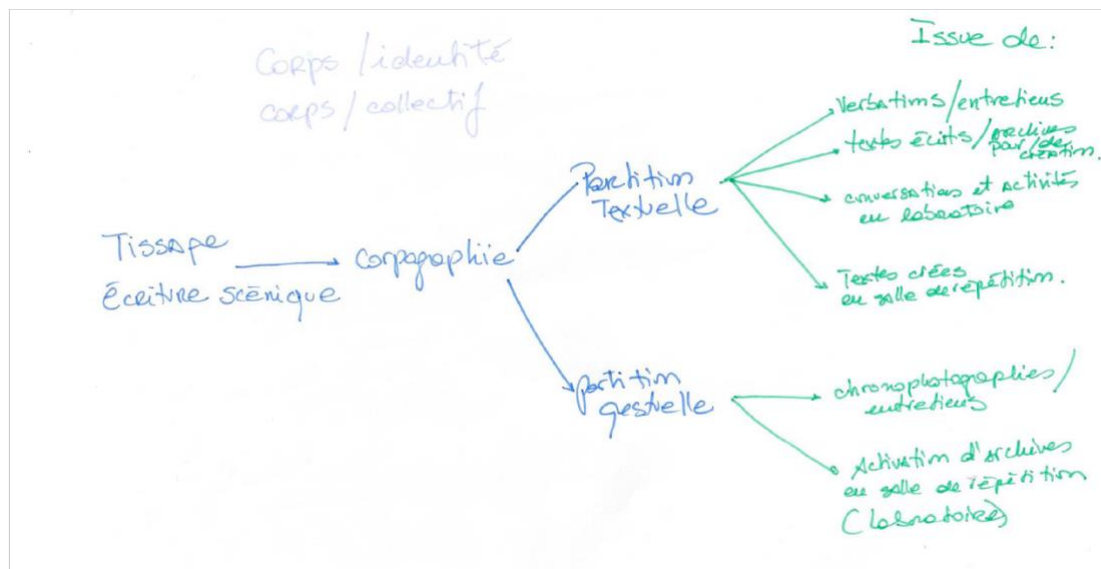 Corps / identité
corps / collectif
Issue de:
Tissage
écriture scénique
corpographie
Partition
Textuelle
Verbatims / entretiens
textes écrits / archives
par / de
création.
conversations et activités
en laboratoire
Textes crées
en salle de répétition.
partition
gestuelle
chronophotographies /
entretiens
Activation d'archives
en salle de répétition
(laboratoire)